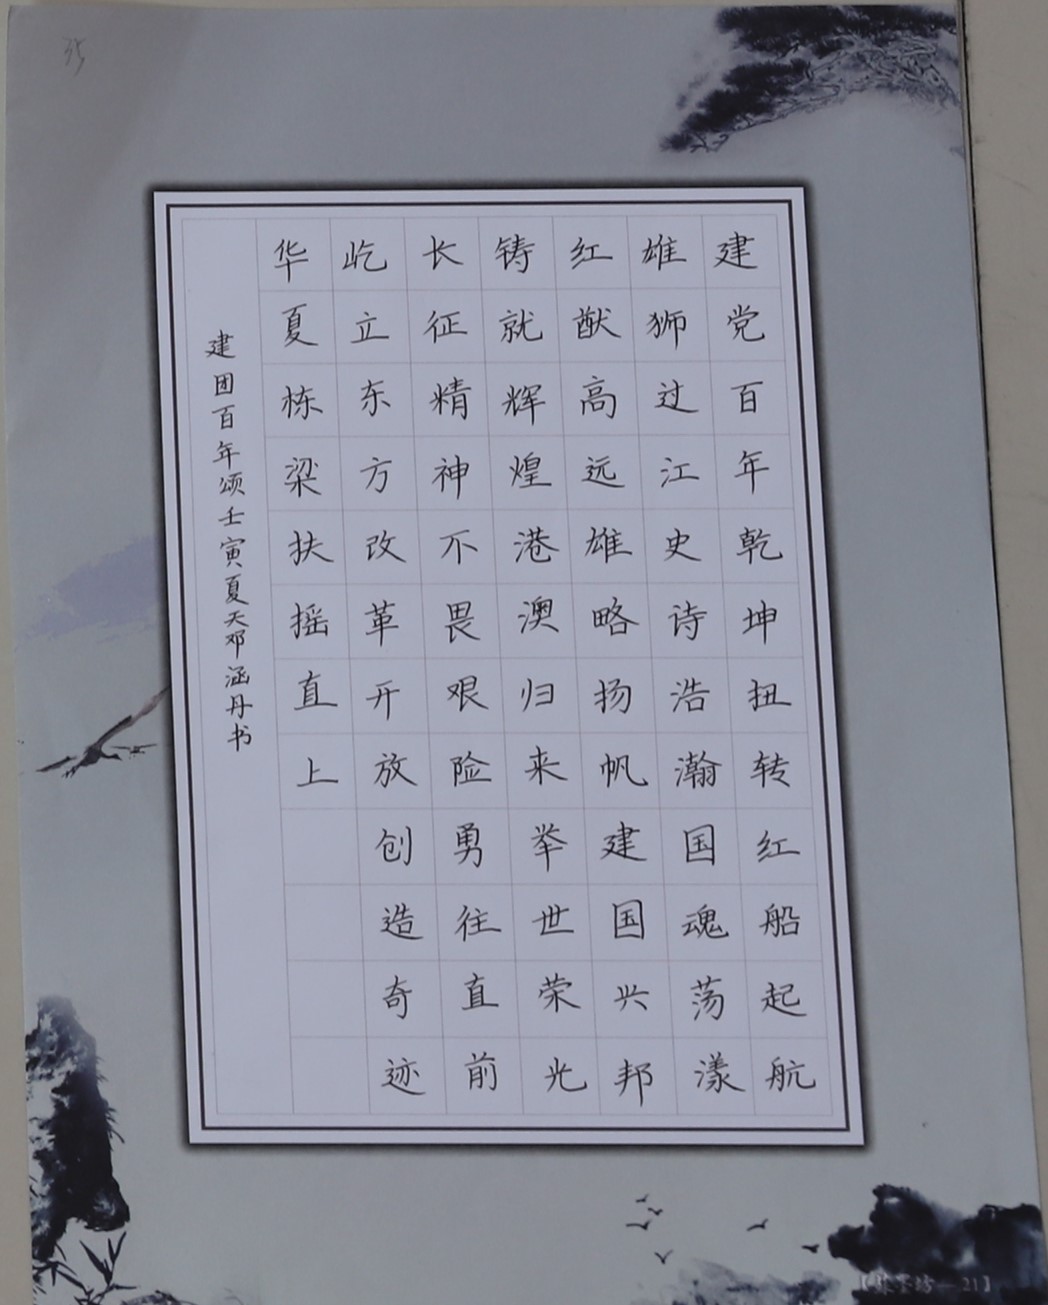 建党百年乾坤扭转红船起航
雄狮过江史诗浩瀚国魂荡漾
红猷高远雄略扬帆建国兴邦
铸就辉煌港澳归来举世荣光
长征精神不畏艰险勇往直前
屹立东方改革开放创造奇迹
华夏栋梁扶摇直上
建团百年颂壬寅夏天邓涵丹书
35